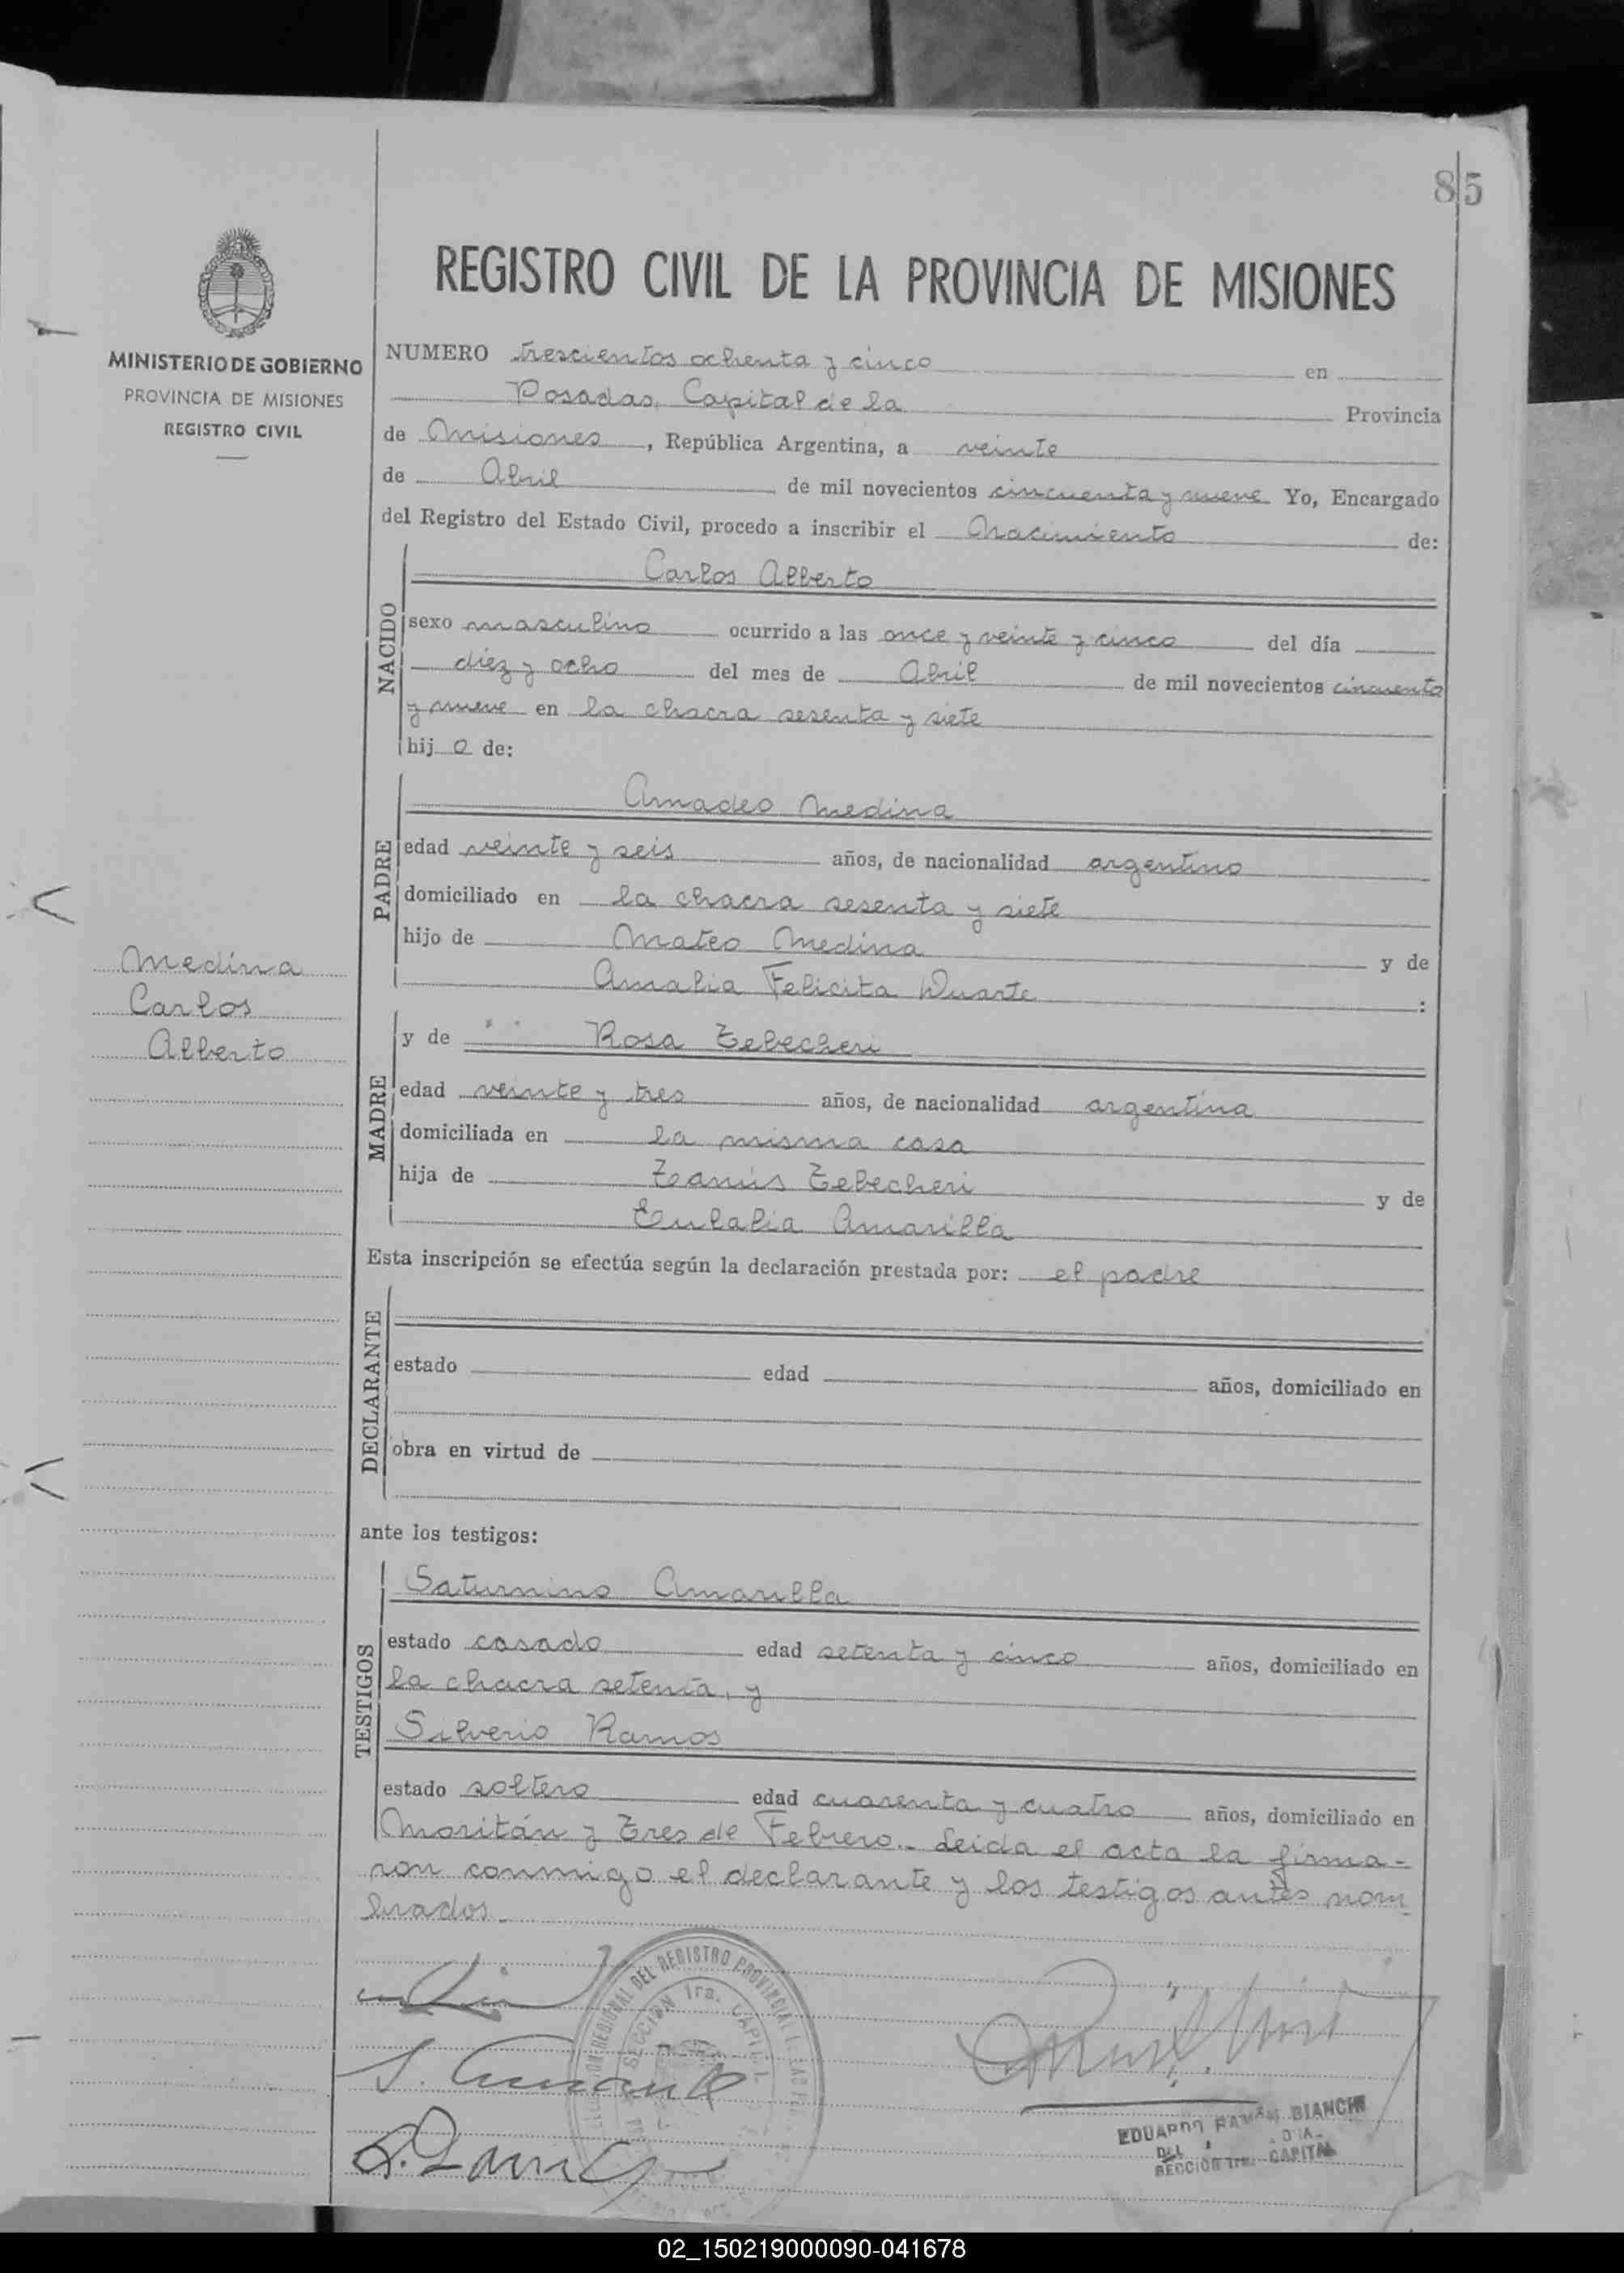 85
REGISTRO CIVIL DE LA PROVINCIA DE MISIONES
MINISTERIO DE GOBIERNO
PROVINCIA DE MISIONES
REGISTRO CIVIL
NUMERO trescientos ochenta y cinco en
Posadas, Capital de la Provincia
de Misiones, República Argentina, a veinte
de Abril de mil novecientos cincuenta y nueve Yo, Encargado
del Registro del Estado Civil, procedo a inscribir el Nacimiento de:
NACIDO
Carlos Alberto
sexo masculino ocurrido a las once y veinte y cinco del día
diez y ocho del mes de Abril de mil novecientos cincuenta
y nueve en la chacra sesenta y siete
hijo de:
PADRE
Amadeo Medina
edad veinte y seis años, de nacionalidad argentino
domiciliado en la chacra sesenta y siete
hijo de Mateo Medina y de
Amalia Felicita Duarte :
Medina
Carlos
Alberto
MADRE
y de Rosa Tebecheri
edad veinte y tres años, de nacionalidad argentina
domiciliada en la misma casa
hija de Tebecheri y de
Eulalia Amarilla
Esta inscripción se efectúa según la declaración prestada por: el padre
DECLARANTE
estado edad años, domiciliado en
obra en virtud de
ante los testigos:
TESTIGOS
Saturnino Amarilla
estado casado edad setenta y cinco años, domiciliado en
la chacra setenta, y
Silverio Ramos
estado soltero edad cuarenta y cuatro años, domiciliado en
Moritán y Tres de Febrero.- Leida el acta la firma-
ron conmigo el declarante y los testigos antes nom
brados.-
DEL REGISTRO PROVINCIAL
SECCION 1ra. CAPITAL
EDUARDO RAMON BIANCHI
SECCION 1ra. CAPITAL
02_150219000090-041678